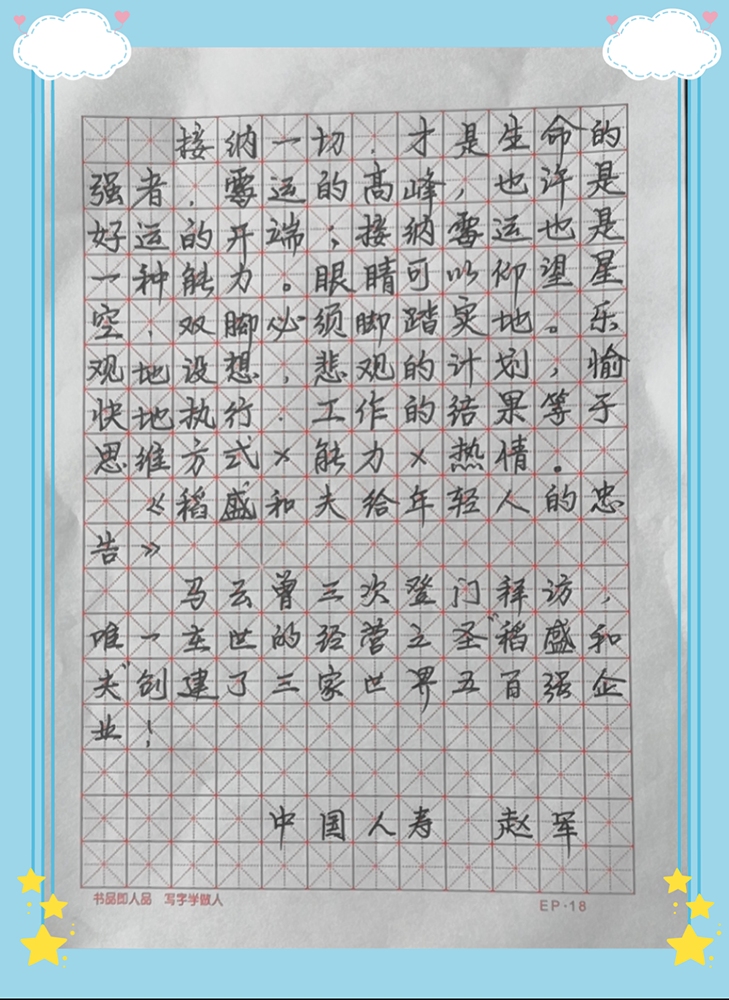 接纳一切，才是生命的
强者，霉运的高峰，也许是
好运的开端；接纳霉运也是
一种能力。眼睛可以仰望星
空，双脚必须脚踏实地。乐
观地设想，悲观的计划，愉
快地执行．工作的结果等于
思维方式×能力×热情．
《稻盛和夫给年轻人的忠
告》
马云曾三次登门拜访，
唯一在世的经营之圣"稻盛和
夫"创建了三家世界五百强企
业！
中国人寿 赵军
书品即人品 写字学做人
EP·18